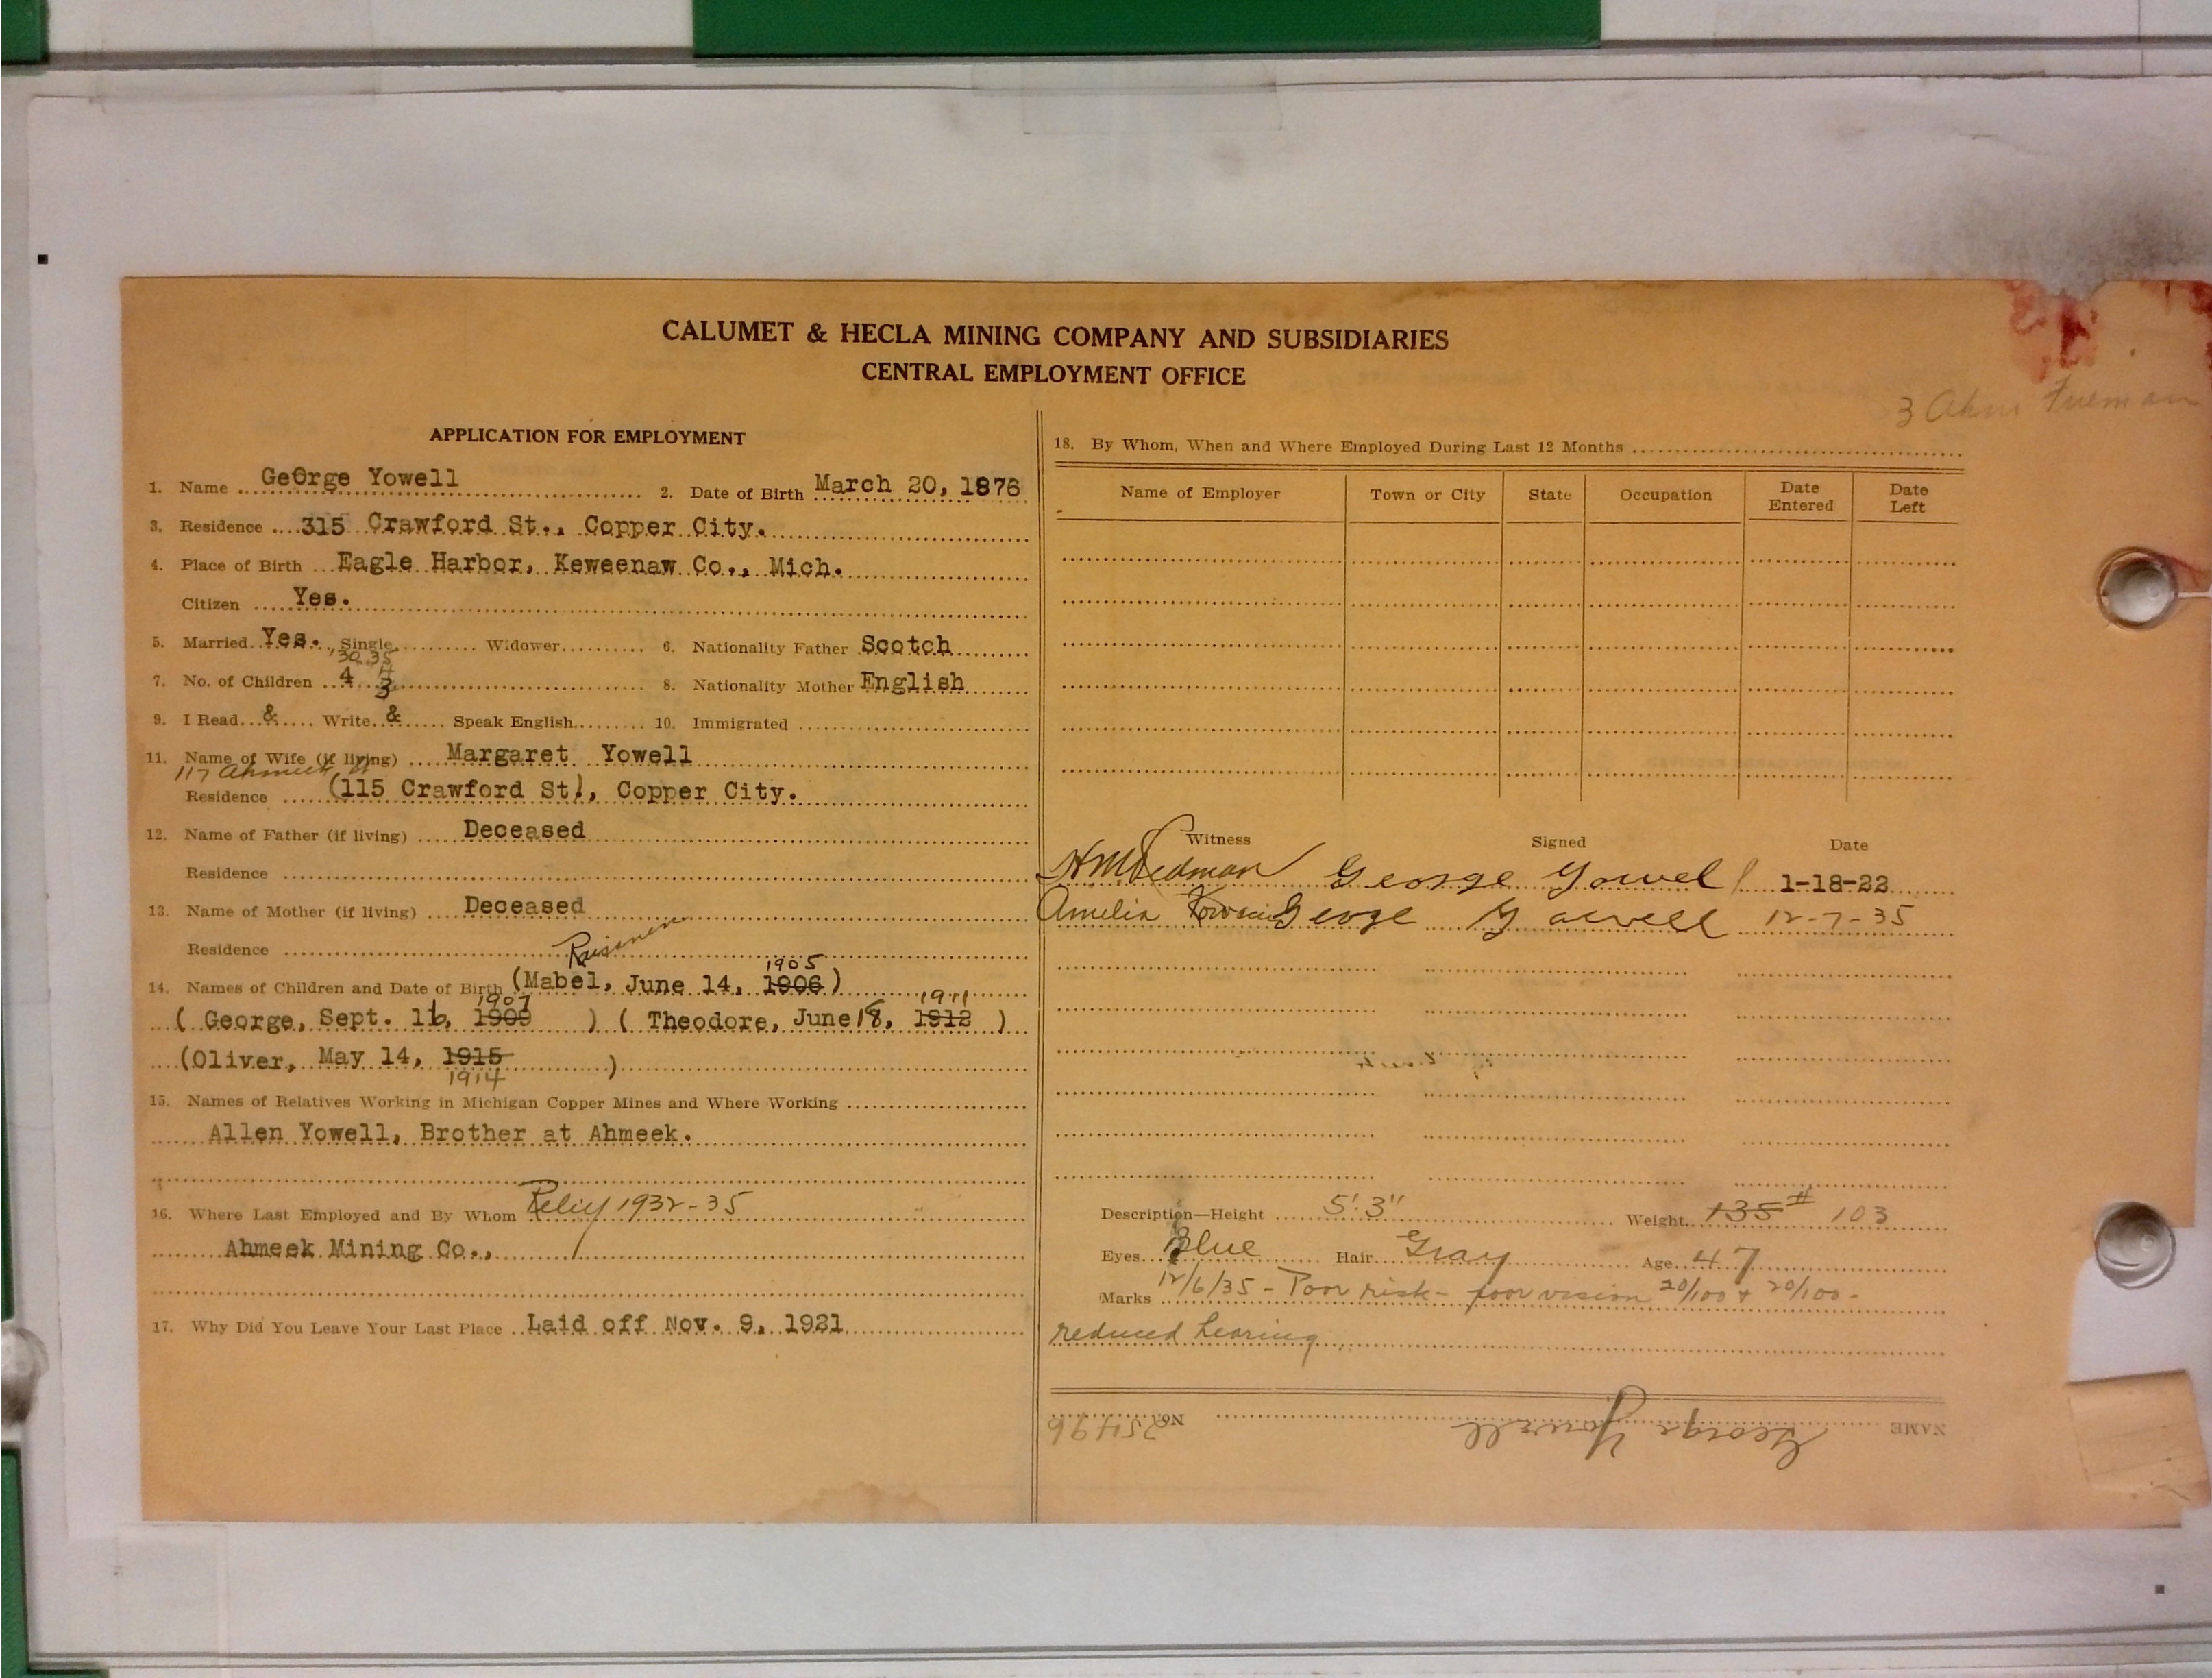 CALUMET & HECLA MINING COMPANY AND SUBSIDIARIES
CENTRAL EMPLOYMENT OFFICE
3
APPLICATION FOR EMPLOYMENT
1. Name GeOrge Yowell 2. Date of Birth March 20, 1876
3. Residence 315 Crawford St., Copper City.
4. Place of Birth Eagle Harbor, Keweenaw Co., Mich.
Citizen Yes.
5. Married Yes. Single Widower 6. Nationality Father Scotch
'30 35
7. No. of Children 4 3 4 8. Nationality Mother English
9. I Read & Write & Speak English 10. Immigrated
11. Name of Wife (if living) Margaret Yowell
117 Ahmeek
Residence (115 Crawford St), Copper City.
12. Name of Father (if living) Deceased
Residence
13. Name of Mother (if living) Deceased
Residence
1905
14. Names of Children and Date of Birth (Mabel, June 14, 1906)
1907 1911
( George, Sept. 16, 1909 ) ( Theodore, June 18, 1912 )
(Oliver, May 14, 1915 )
1914
15. Names of Relatives Working in Michigan Copper Mines and Where Working
Allen Yowell, Brother at Ahmeek.
16. Where Last Employed and By Whom Relief 1932-35
Ahmeek Mining Co.,
17. Why Did You Leave Your Last Place Laid off Nov. 9, 1921
18. By Whom, When and Where Employed During Last 12 Months
Name of Employer Town or City State Occupation Date Entered Date Left
Witness Signed Date
George Yowell 1-18-22
Amelia George Yowell 12-7-35
Description—Height 5' 3" Weight 135# 103
Eyes Blue Hair Gray Age 47
Marks 12/6/35 - Poor risk - poor vision 20/100 + 20/100 -
reduced hearing
NAME George Yowell No. 25496